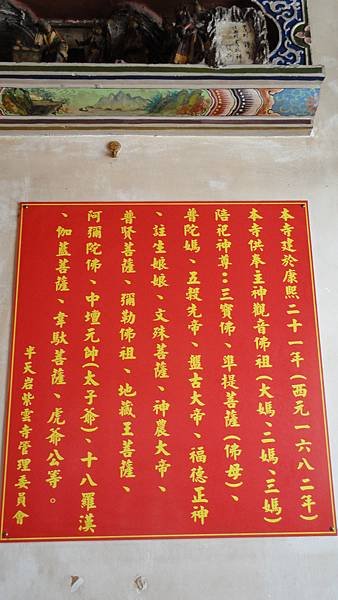 本寺建於康熙二十一年(西元一六八二年)
本寺供奉主神觀音佛祖(大媽、二媽、三媽)
陪祀神尊:三寶佛、準提菩薩(佛母)、
普陀媽、五穀先帝、盤古大帝、福德正神
、註生娘娘、文殊菩薩、神農大帝、
普賢菩薩、彌勒佛祖、地藏王菩薩、
阿彌陀佛、中壇元帥(太子爺)、十八羅漢
、伽藍菩薩、韋馱菩薩、虎爺公等。
半天岩紫雲寺管理委員會